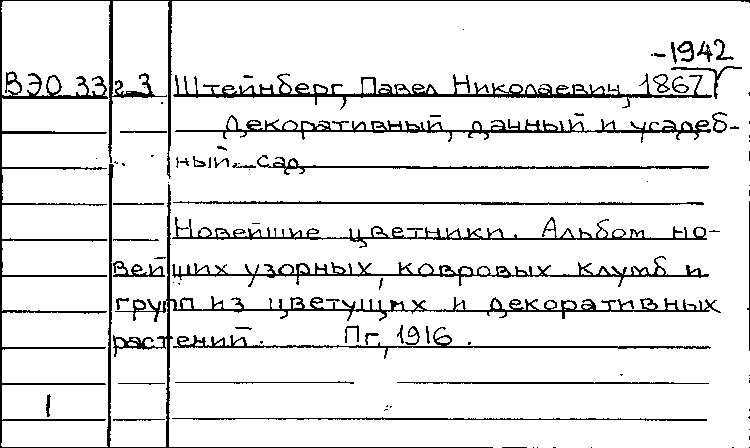 -1942
ВЭО 33 г 3 Штейнберг, Павел Николаевич, 1867
Декоративный, дачный и усадеб-
ный сад
Новейшие цветники. Альбом но-
вейших узорных, ковровых клумб и
групп из цветущих и декоративных
растений. Пг, 1916.
1